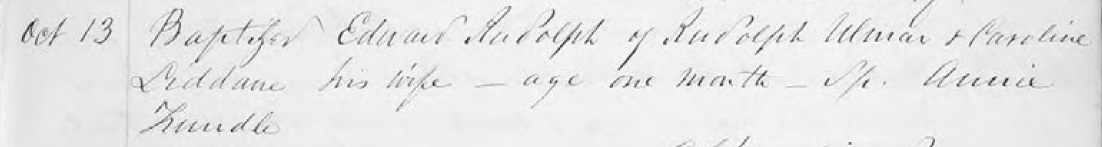 Oct 13 Baptized Edward Rudolph of Rudolph Ulmar & Caroline
Liddane his wife – age one month – Sp. Annie
Trundle